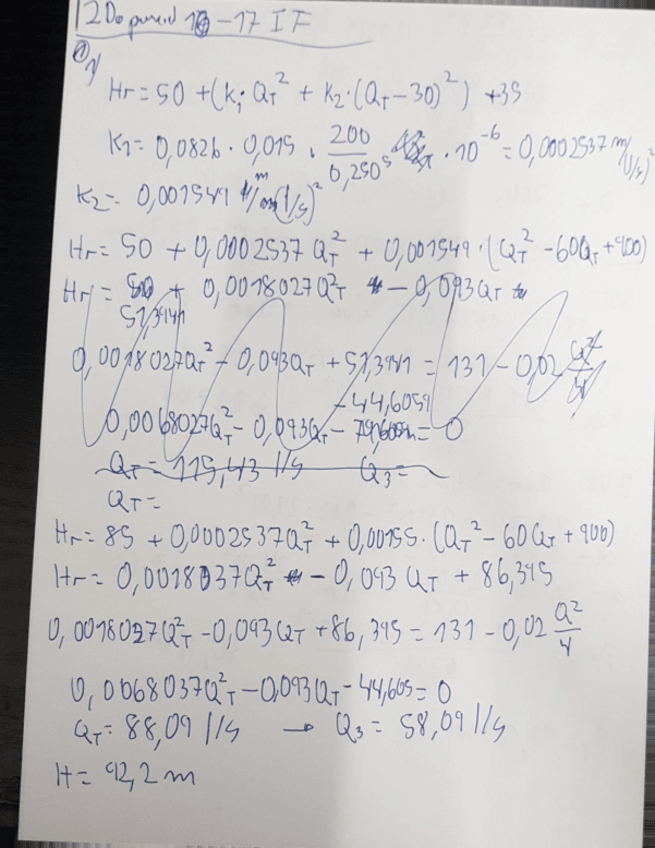 2Do punid 16-17 IF
1)
Hr = 50 + (K₁·Q_T² + K₂·(Q_T-30)²) + 35
K₁ = 0,0826 · 0,015 · 200/0,250⁵ · 10⁻⁶ = 0,0002537 m/(l/s)²
K₂ = 0,001549 m/(l/s)²
Hr = 50 + 0,0002537 Q_T² + 0,001549·(Q_T² - 60Q_T + 900)
Hr = 51,3941 + 0,0018027Q_T² - 0,093Q_T
0,0018027Q_T² - 0,093Q_T + 51,3941 = 131 - 0,02
0,0068027Q_T² - 0,093Q_T - 44,6059 = 0
Q_T = 115,43 l/s Q₃ =
Q_T =
Hr = 85 + 0,0002537Q_T² + 0,00155·(Q_T² - 60Q_T + 900)
Hr = 0,0018037Q_T² - 0,093Q_T + 86,395
0,0018027Q_T² - 0,093Q_T + 86,395 = 131 - 0,02 Q²/4
0,0068037Q_T² - 0,093Q_T - 44,605 = 0
Q_T = 88,09 l/s → Q₃ = 58,09 l/s
H = 92,2 m